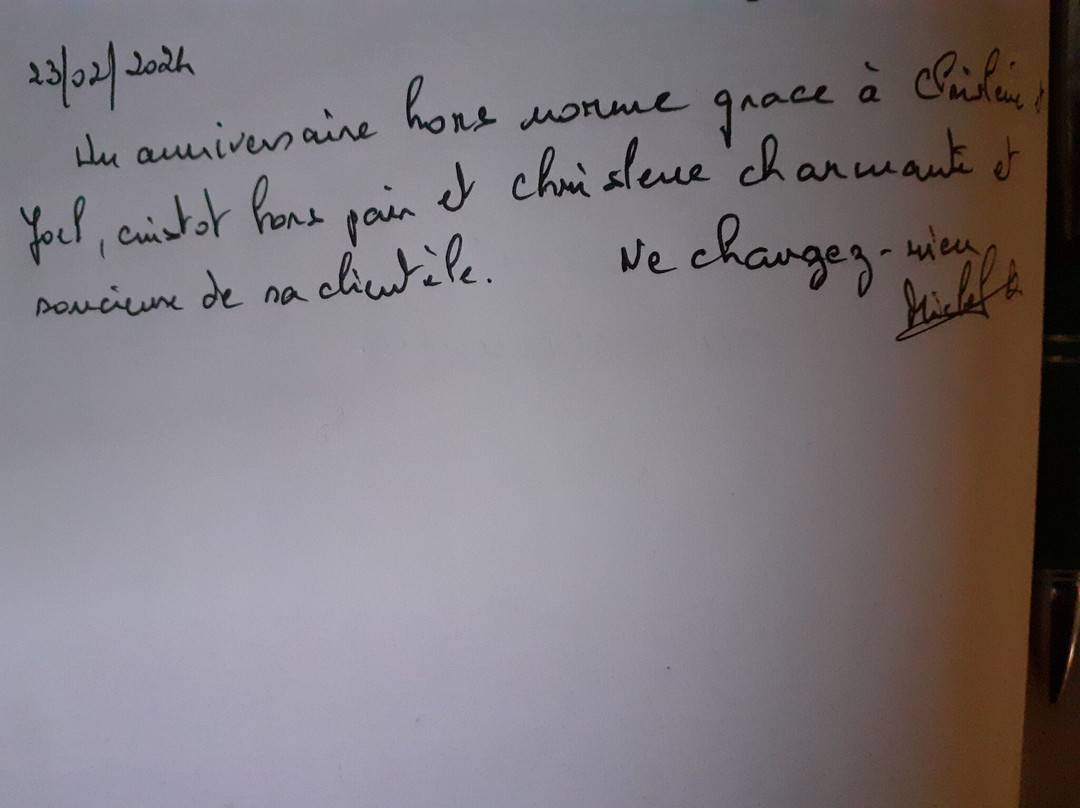 23/02/2024
Un anniversaire hors norme grace à Christene et
Joel, cuistot hors pair et Christene charmante et
soucieuse de sa clientèle. Ne changez-rien
Michel